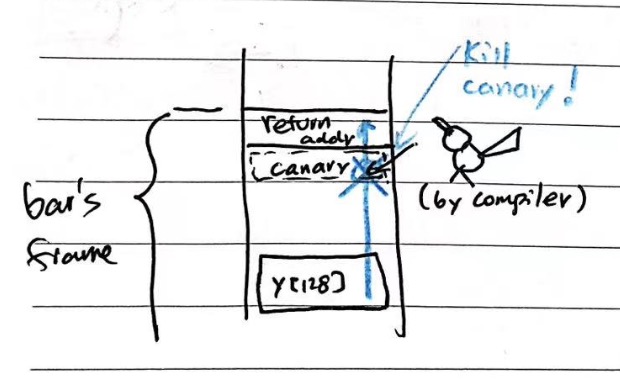 Kill
canary!
return
addr
canary
(by compiler)
bar's
frame
y[128]